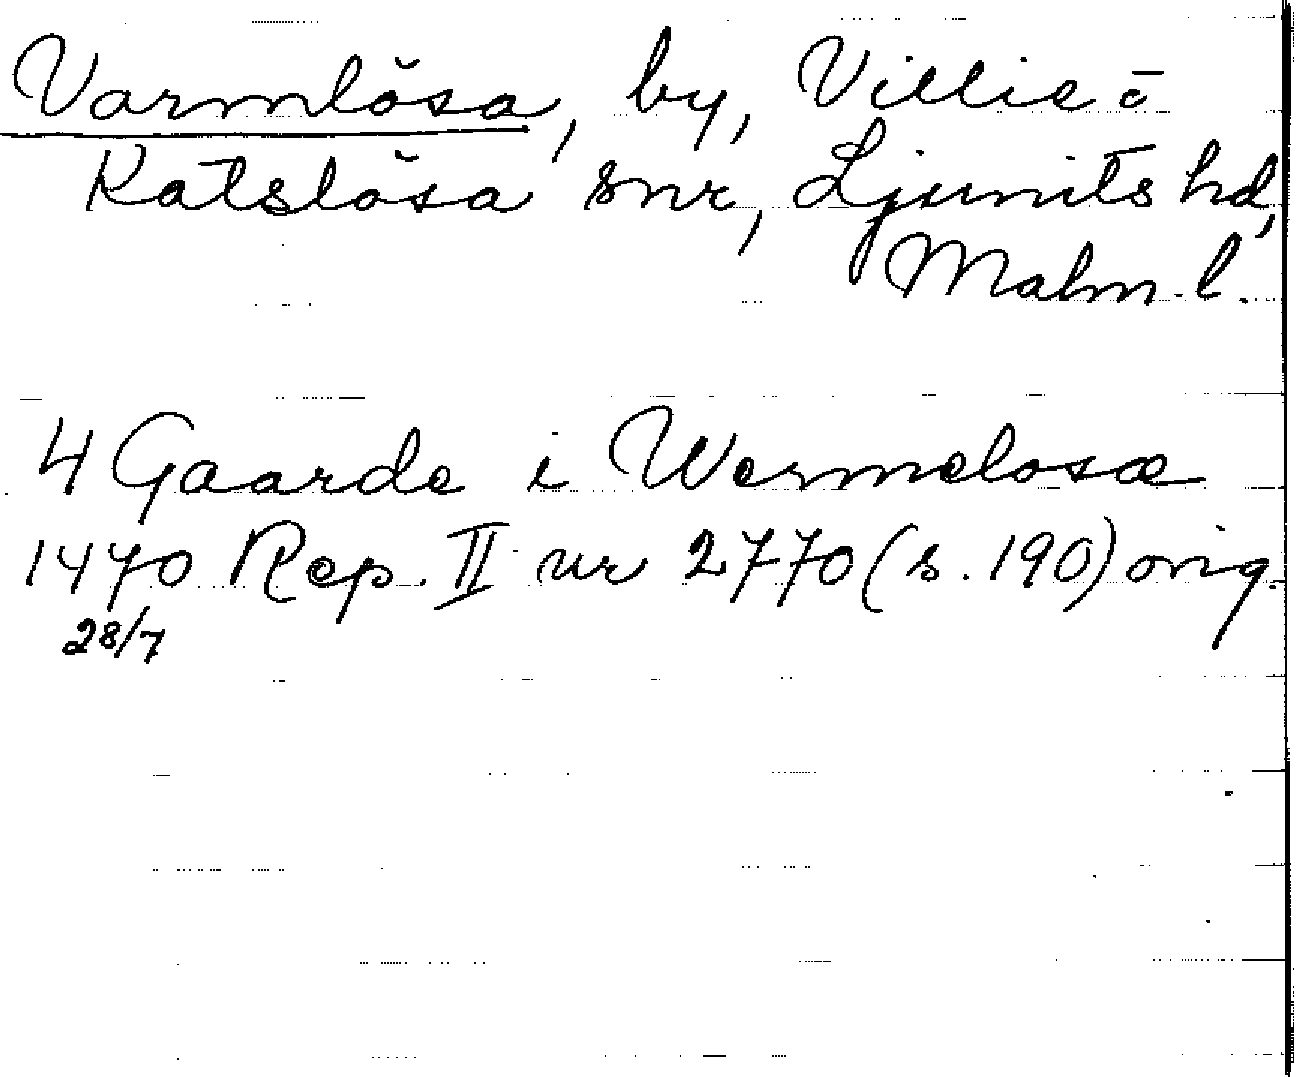 Varmlösa, by, Villie o
Katslösa snr, Ljunits hd,
Malm. l.
4 Gaarde i Wermelosæ
1470 Rep. II nr 2770 (s. 190) orig.
28/7